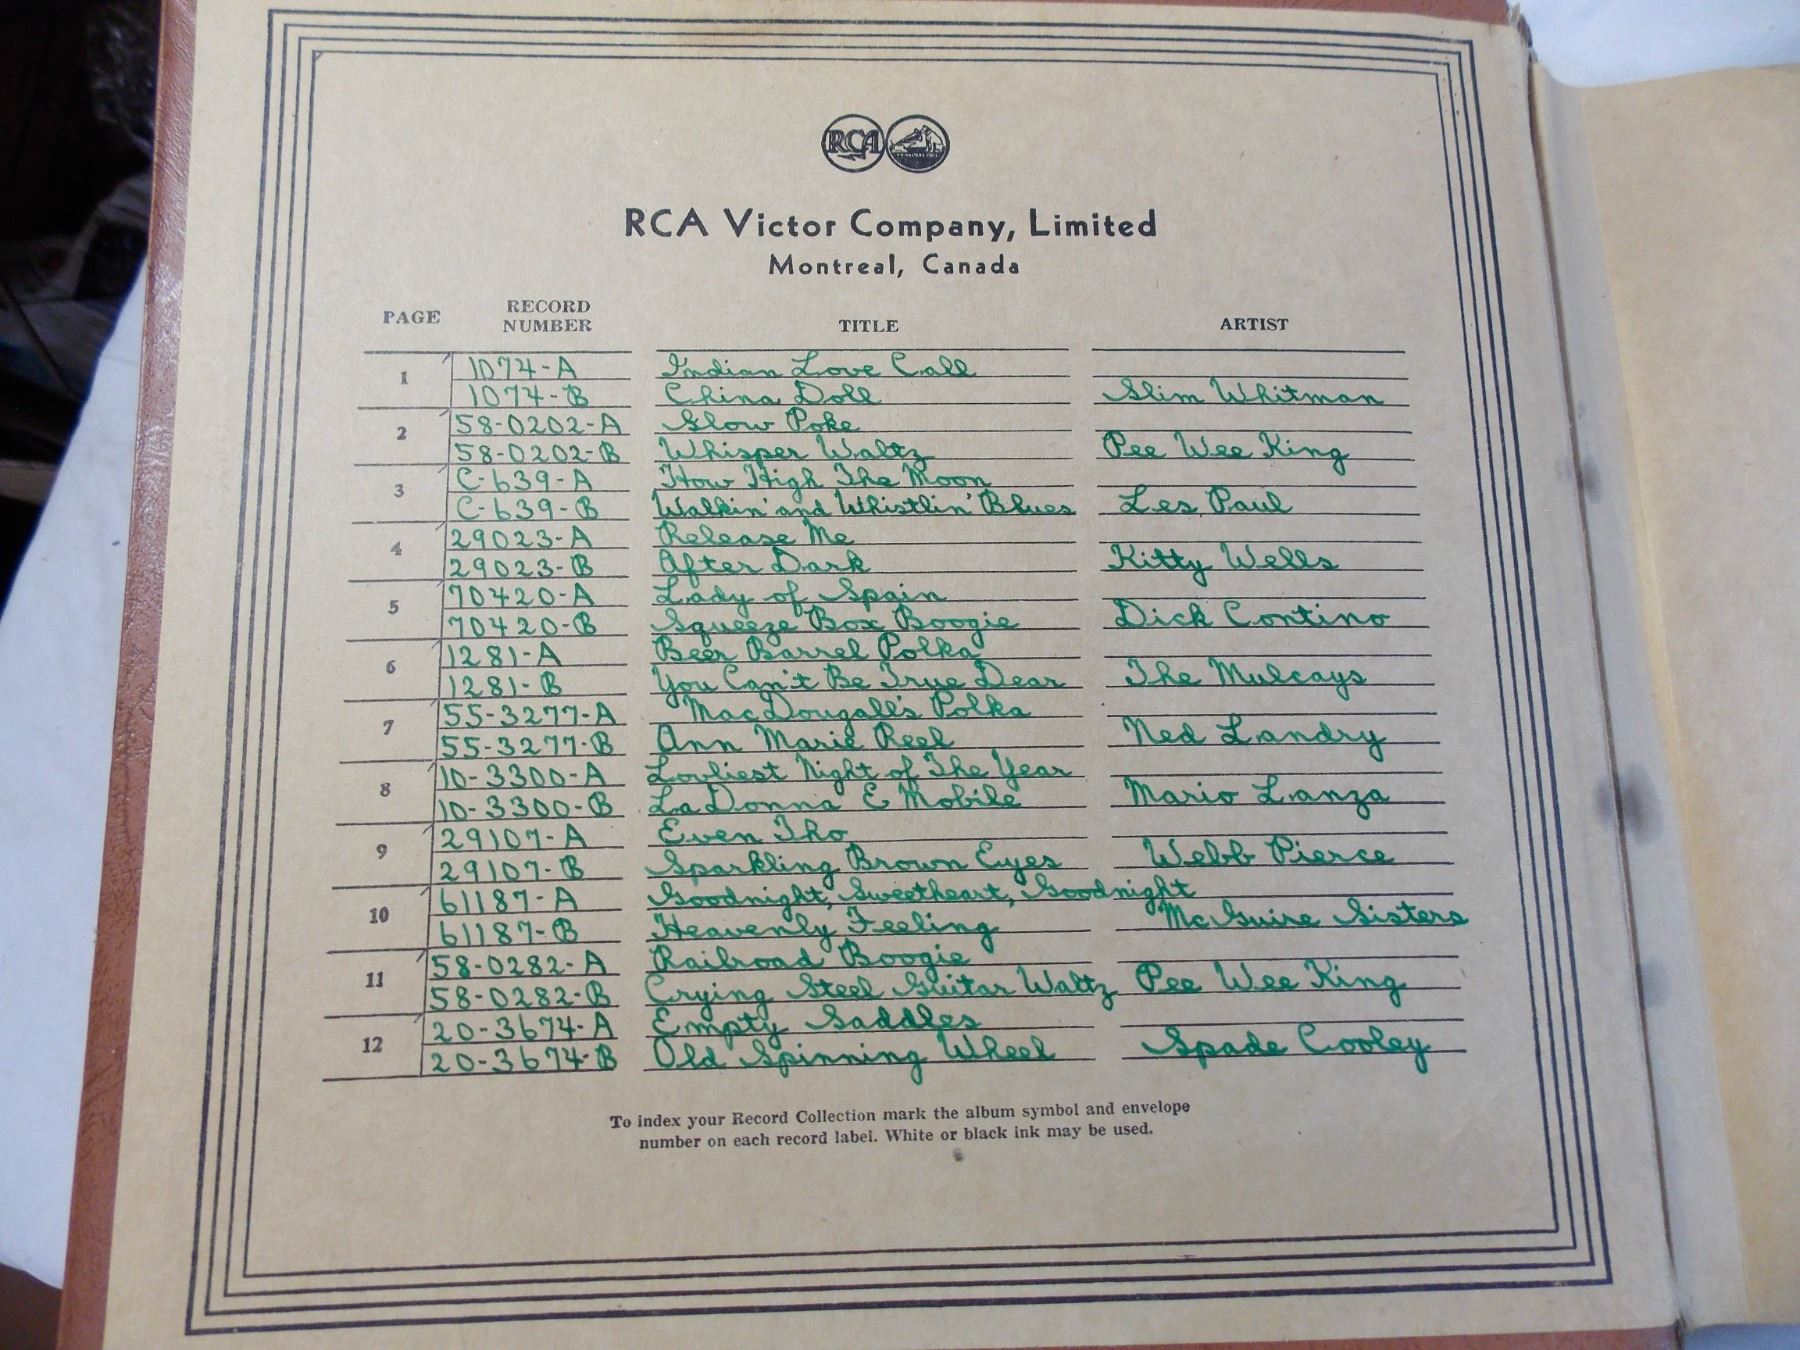 RCA
RCA Victor Company, Limited
Montreal, Canada
PAGE RECORD NUMBER TITLE ARTIST
1 1074-A Indian Love Call
1074-B China Doll Slim Whitman
2 58-0202-A Slow Poke
58-0202-B Whisper Waltz Pee Wee King
3 C-639-A How High The Moon
C-639-B Walkin' and Whistlin' Blues Les Paul
4 29023-A Release Me
29023-B After Dark Kitty Wells
5 70420-A Lady of Spain
70420-B Squeeze Box Boogie Dick Contino
6 1281-A Beer Barrel Polka
1281-B You Can't Be True Dear The Mulcays
7 55-3277-A MacDougall's Polka
55-3277-B Ann Marie Reel Ned Landry
8 10-3300-A Lovliest Night of The Year
10-3300-B La Donna E Mobile Mario Lanza
9 29107-A Even Tho
29107-B Sparkling Brown Eyes Webb Pierce
10 61187-A Goodnight, Sweetheart, Goodnight
61187-B Heavenly Feeling McGuire Sisters
11 58-0282-A Railroad Boogie
58-0282-B Crying Steel Guitar Waltz Pee Wee King
12 20-3674-A Empty Saddles
20-3674-B Old Spinning Wheel Spade Cooley
To index your Record Collection mark the album symbol and envelope
number on each record label. White or black ink may be used.